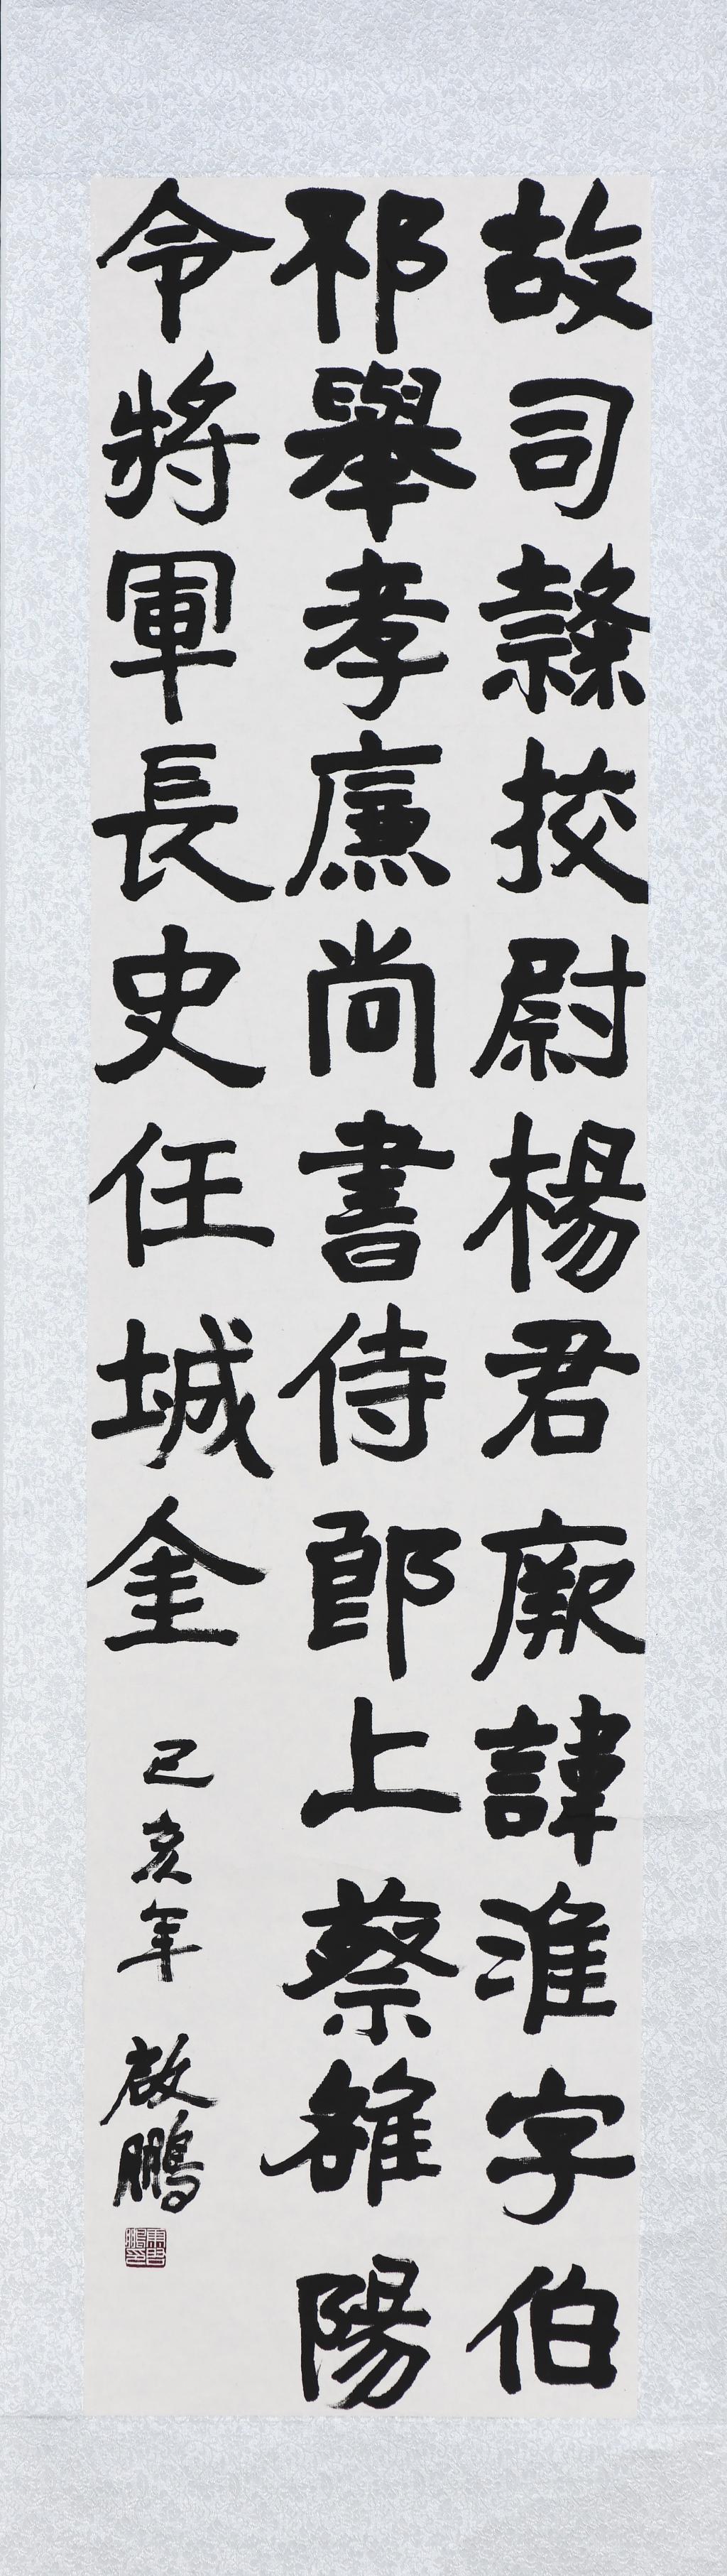 故司隸挍尉楊君厥諱淮字伯
邳舉孝廉尚書侍郎上蔡雒陽
令將軍長史任城金
己亥年
啟鵬